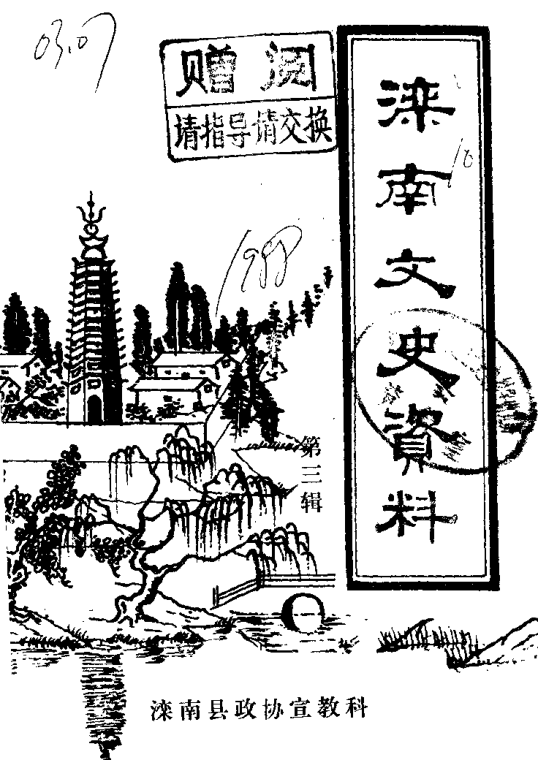 03.07
赠阅
请指导请交换
滦南文史資料
10
1988
第三辑
滦南县政协宣教科